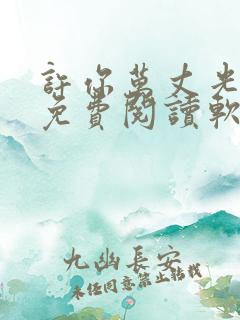 許你萬丈光
免費閱讀軟
九幽長安
未經同意禁止轉載